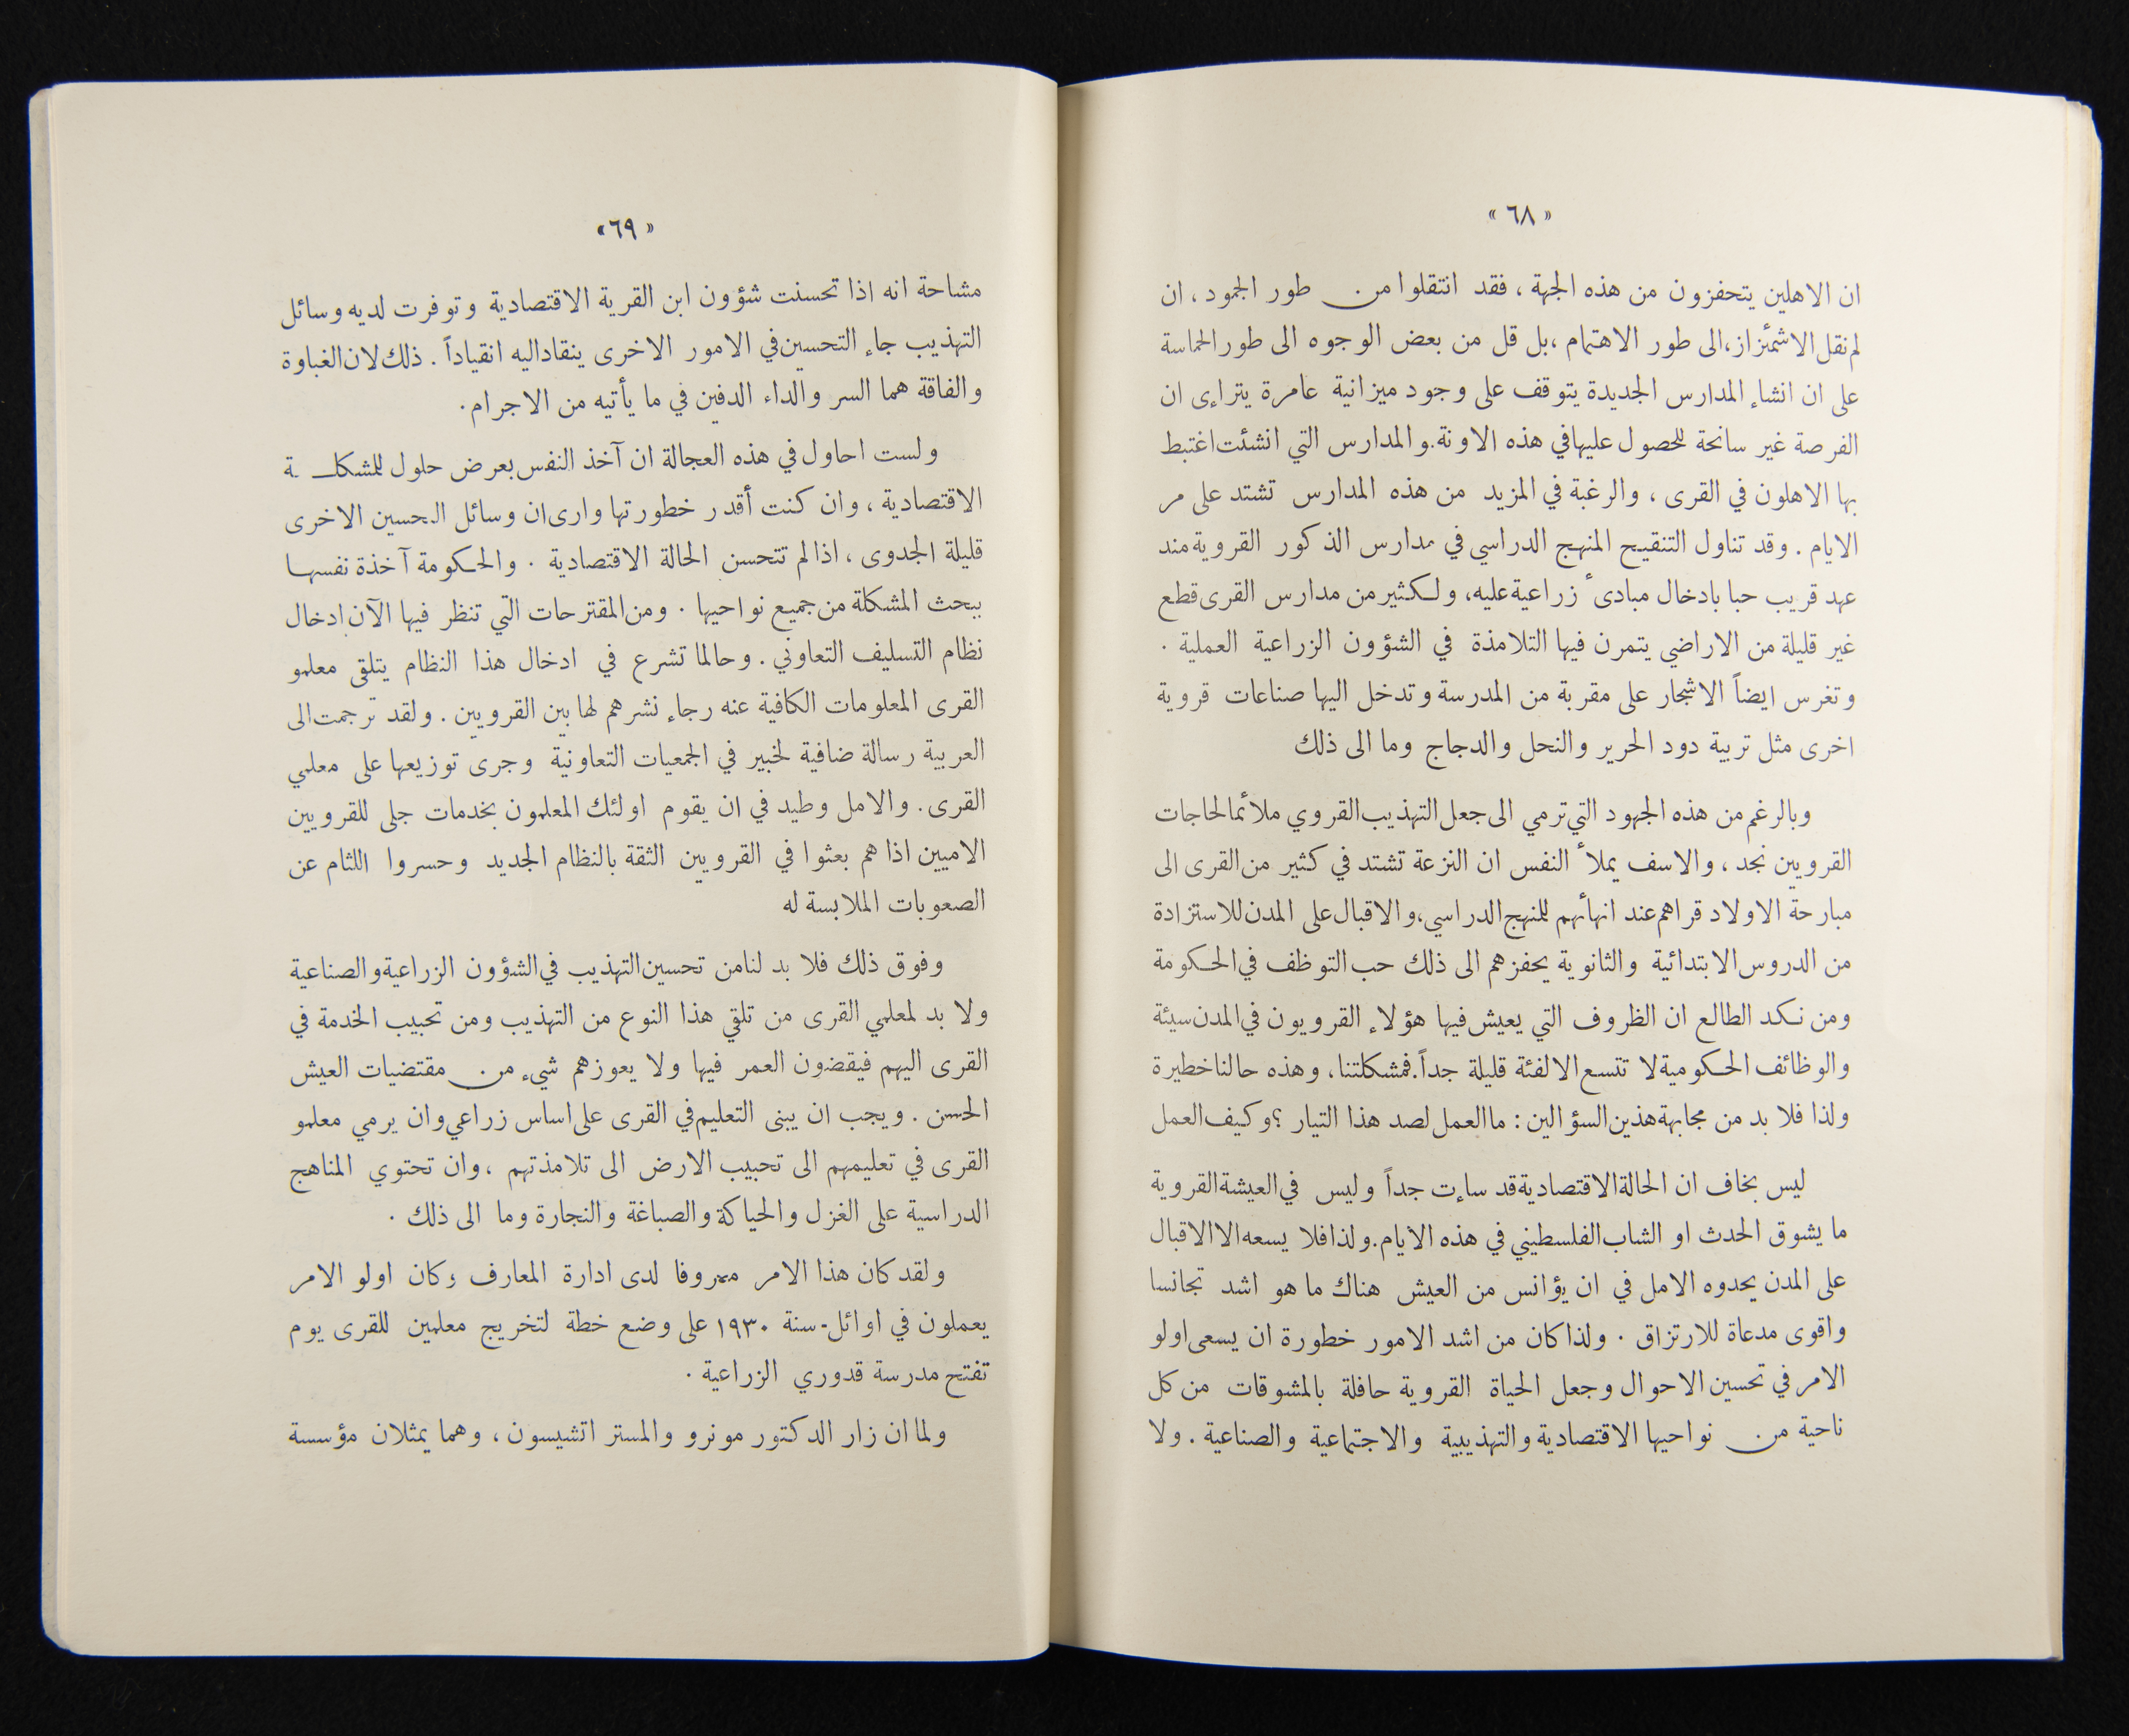 « ٦٨ »
ان الاهلين يتحفزون من هذه الجهة ، فقد انتقلوا من طور الجمود ، ان
لم نقل الاشمئزاز، الى طور الاهتمام ، بل قل من بعض الوجوه الى طور الحماسة
على ان انشاء المدارس الجديدة يتوقف على وجود ميزانية عامرة يتراءى ان
الفرصة غير سانحة للحصول عليها في هذه الاونة. والمدارس التي انشئت اغتبط
بها الاهلون في القرى ، والرغبة في المزيد من هذه المدارس تشتد على مر
الايام . وقد تناول التنقيح المنهج الدراسي في مدارس الذكور القروية منذ
عهد قريب حبا بادخال مبادىء زراعية عليه، ولكثير من مدارس القرى قطع
غير قليلة من الاراضي يتمرن فيها التلامذة في الشؤون الزراعية العملية .
وتغرس ايضاً الاشجار على مقربة من المدرسة وتدخل اليها صناعات قروية
اخرى مثل تربية دود الحرير والنحل والدجاج وما الى ذلك
وبالرغم من هذه الجهود التي ترمي الى جعل التهذيب القروي ملائما لحاجات
القرويين نجد ، والاسف يملأ النفس ان النزعة تشتد في كثير من القرى الى
مبارحة الاولاد قراهم عند انهائهم للمنهج الدراسي، والاقبال على المدن للاستزادة
من الدروس الابتدائية والثانوية يحفزهم الى ذلك حب التوظف في الحكومة
ومن نكد الطالع ان الظروف التي يعيش فيها هؤلاء القرويون في المدن سيئة
والوظائف الحكومية لا تتسع الا لفئة قليلة جداً. فمشكلتنا ، وهذه حالنا خطيرة
ولذا فلا بد من مجابهة هذين السؤالين : ما العمل لصد هذا التيار ؟ وكيف العمل
ليس بخاف ان الحالة الاقتصادية قد ساءت جداً وليس في العيشة القروية
ما يشوق الحدث او الشاب الفلسطيني في هذه الايام. ولذا فلا يسعه الا الاقبال
على المدن يحدوه الامل في ان يؤانس من العيش هناك ما هو اشد تجانسا
واقوى مدعاة للارتزاق . ولذا كان من اشد الامور خطورة ان يسعى اولو
الامر في تحسين الاحوال وجعل الحياة القروية حافلة بالمشوقات من كل
ناحية من نواحيها الاقتصادية والتهذيبية والاجتماعية والصناعية . ولا
« ٦٩ »
مشاحة انه اذا تحسنت شؤون ابن القرية الاقتصادية وتوفرت لديه وسائل
التهذيب جاء التحسين في الامور الاخرى ينقاد اليه انقياداً . ذلك لان الغباوة
والفاقة هما السر والداء الدفين في ما يأتيه من الاجرام .
ولست احاول في هذه العجالة ان آخذ النفس بعرض حلول للمشكلة
الاقتصادية ، وان كنت أقدر خطورتها وارى ان وسائل التحسين الاخرى
قليلة الجدوى ، اذا لم تتحسن الحالة الاقتصادية . والحكومة آخذة نفسها
ببحث المشكلة من جميع نواحيها . ومن المقترحات التي تنظر فيها الآن ادخال
نظام التسليف التعاوني . وحالما تشرع في ادخال هذا النظام يتلقى معلمو
القرى المعلومات الكافية عنه رجاء نشرهم لها بين القرويين . ولقد ترجمت الى
العربية رسالة ضافية لخبير في الجمعيات التعاونية وجرى توزيعها على معلمي
القرى . والامل وطيد في ان يقوم اولئك المعلمون بخدمات جلى للقرويين
الاميين اذا هم بعثوا في القرويين الثقة بالنظام الجديد وحسروا اللثام عن
الصعوبات الملابسة له
وفوق ذلك فلا بد لنا من تحسين التهذيب في الشؤون الزراعية والصناعية
ولا بد لمعلمي القرى من تلقي هذا النوع من التهذيب ومن تحبيب الخدمة في
القرى اليهم فيقضون العمر فيها ولا يعوزهم شيء من مقتضيات العيش
الحسن . ويجب ان يبنى التعليم في القرى على اساس زراعي وان يرمي معلمو
القرى في تعليمهم الى تحبيب الارض الى تلامذتهم ، وان تحتوي المناهج
الدراسية على الغزل والحياكة والصباغة والنجارة وما الى ذلك .
ولقد كان هذا الامر معروفا لدى ادارة المعارف وكان اولو الامر
يعملون في اوائل سنة ١٩٣٠ على وضع خطة لتخريج معلمين للقرى يوم
تفتح مدرسة قدوري الزراعية .
ولما ان زار الدكتور مونرو والمستر اتشيسون ، وهما يمثلان مؤسسة